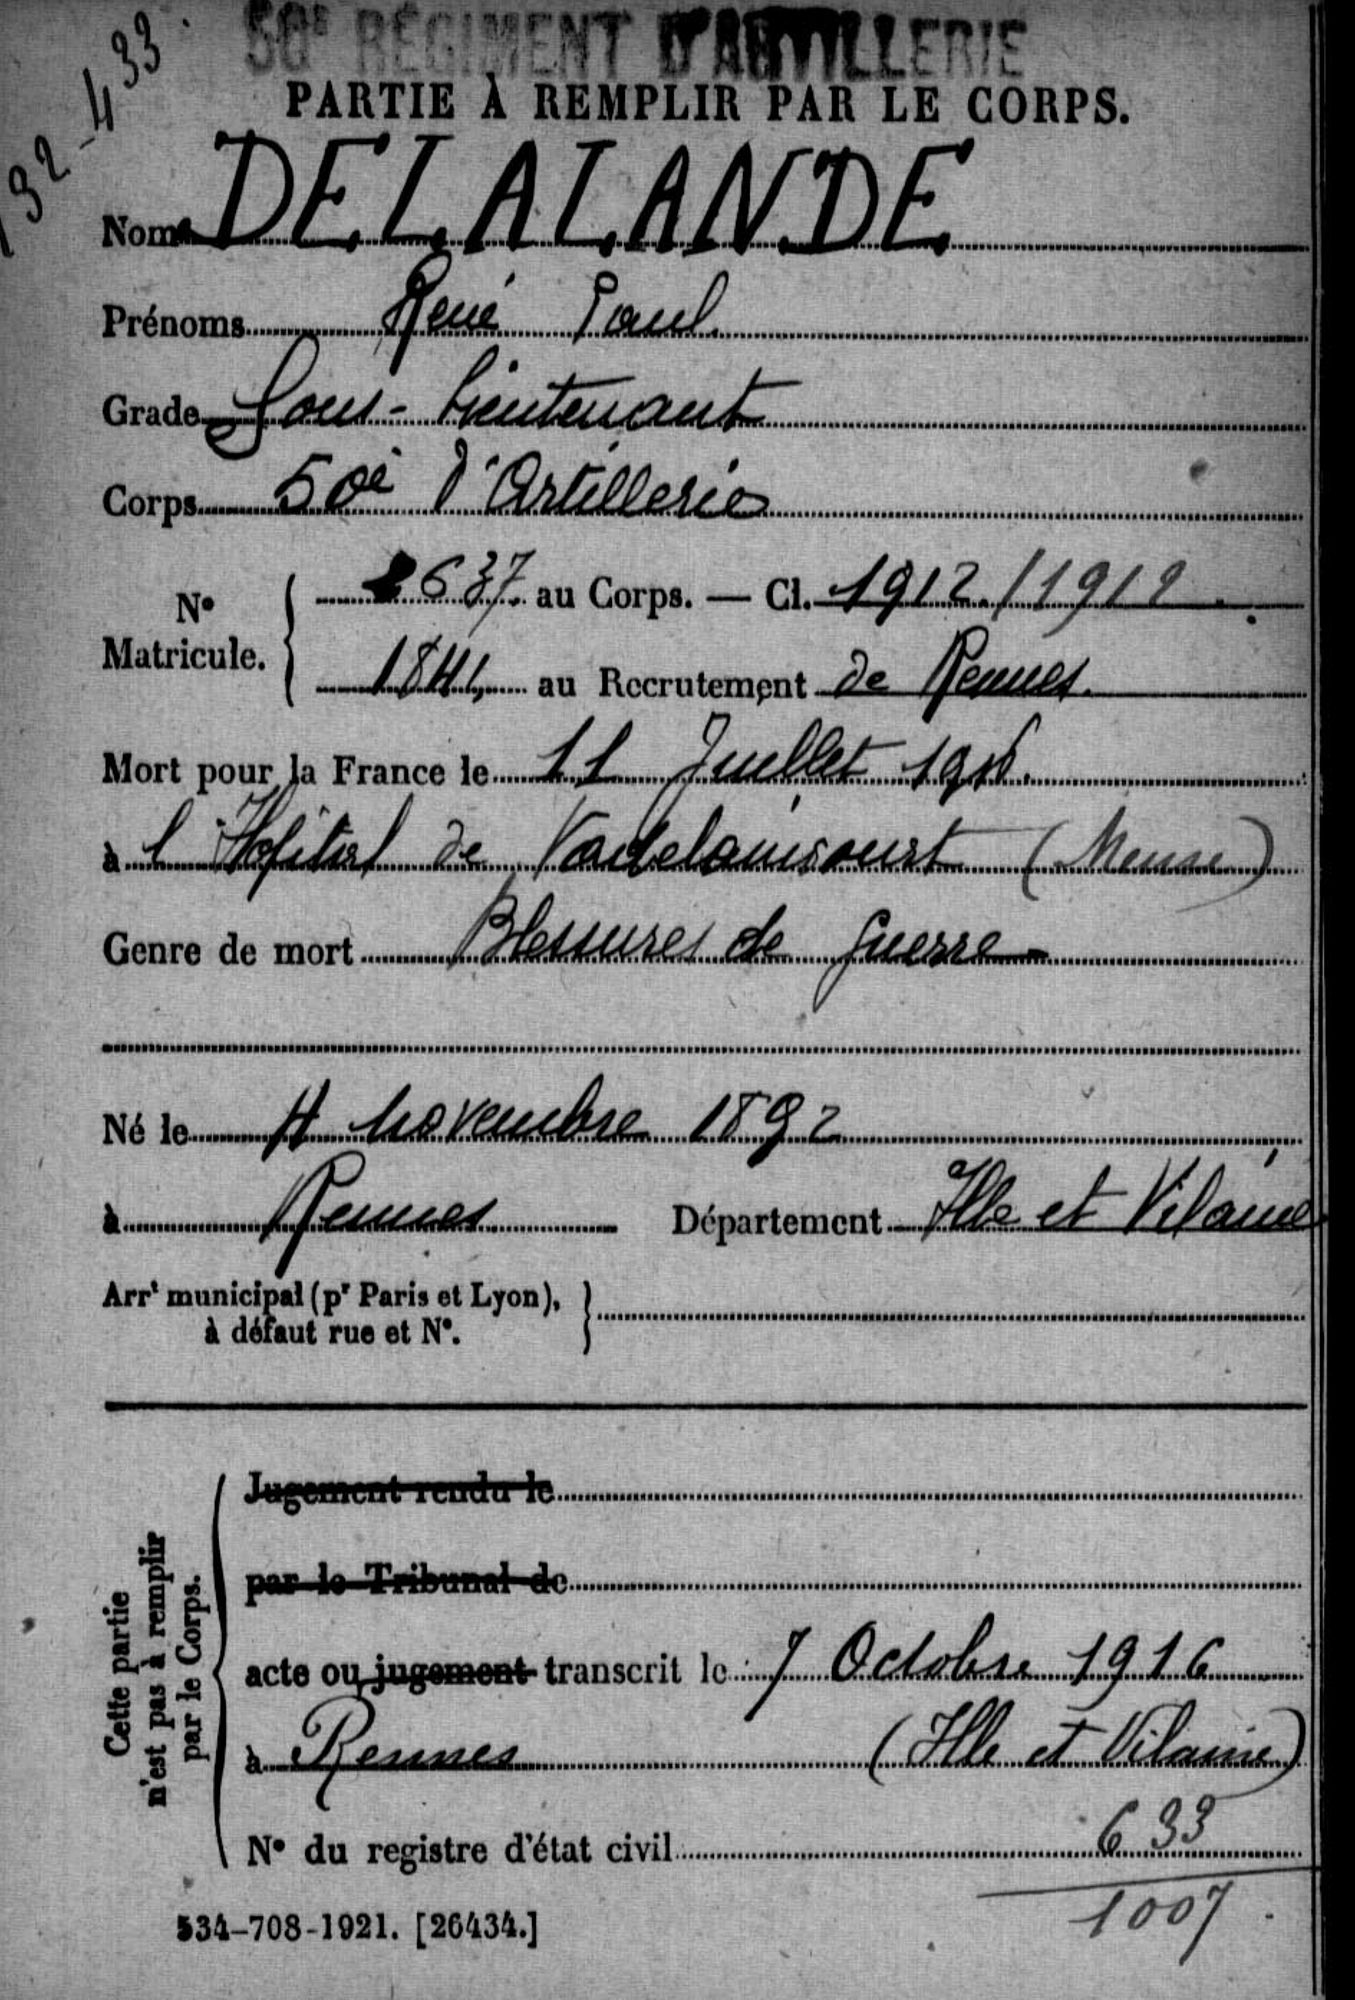 132-433
50e RÉGIMENT D'ARTILLERIE
PARTIE À REMPLIR PAR LE CORPS.
Nom DELALANDE
Prénoms René Paul
Grade Sous-Lieutenant
Corps 50e d'Artillerie
No Matricule. { 2637 au Corps. — Cl. 1912 / 1912
1841 au Recrutement de Rennes.
Mort pour la France le 11 Juillet 1916.
à l'Hôpital de Vadelaincourt (Meuse)
Genre de mort Blessures de guerre
Né le 4 Novembre 1892
à Rennes Département Ille et Vilaine
Arrt municipal (pr Paris et Lyon),
à défaut rue et No. }
Cette partie
n'est pas à remplir
par le Corps.
Jugement rendu le
par le Tribunal de
acte ou jugement transcrit le 7 Octobre 1916
à Rennes (Ille et Vilaine)
No du registre d'état civil 633
1007
534-708-1921. [26434.]